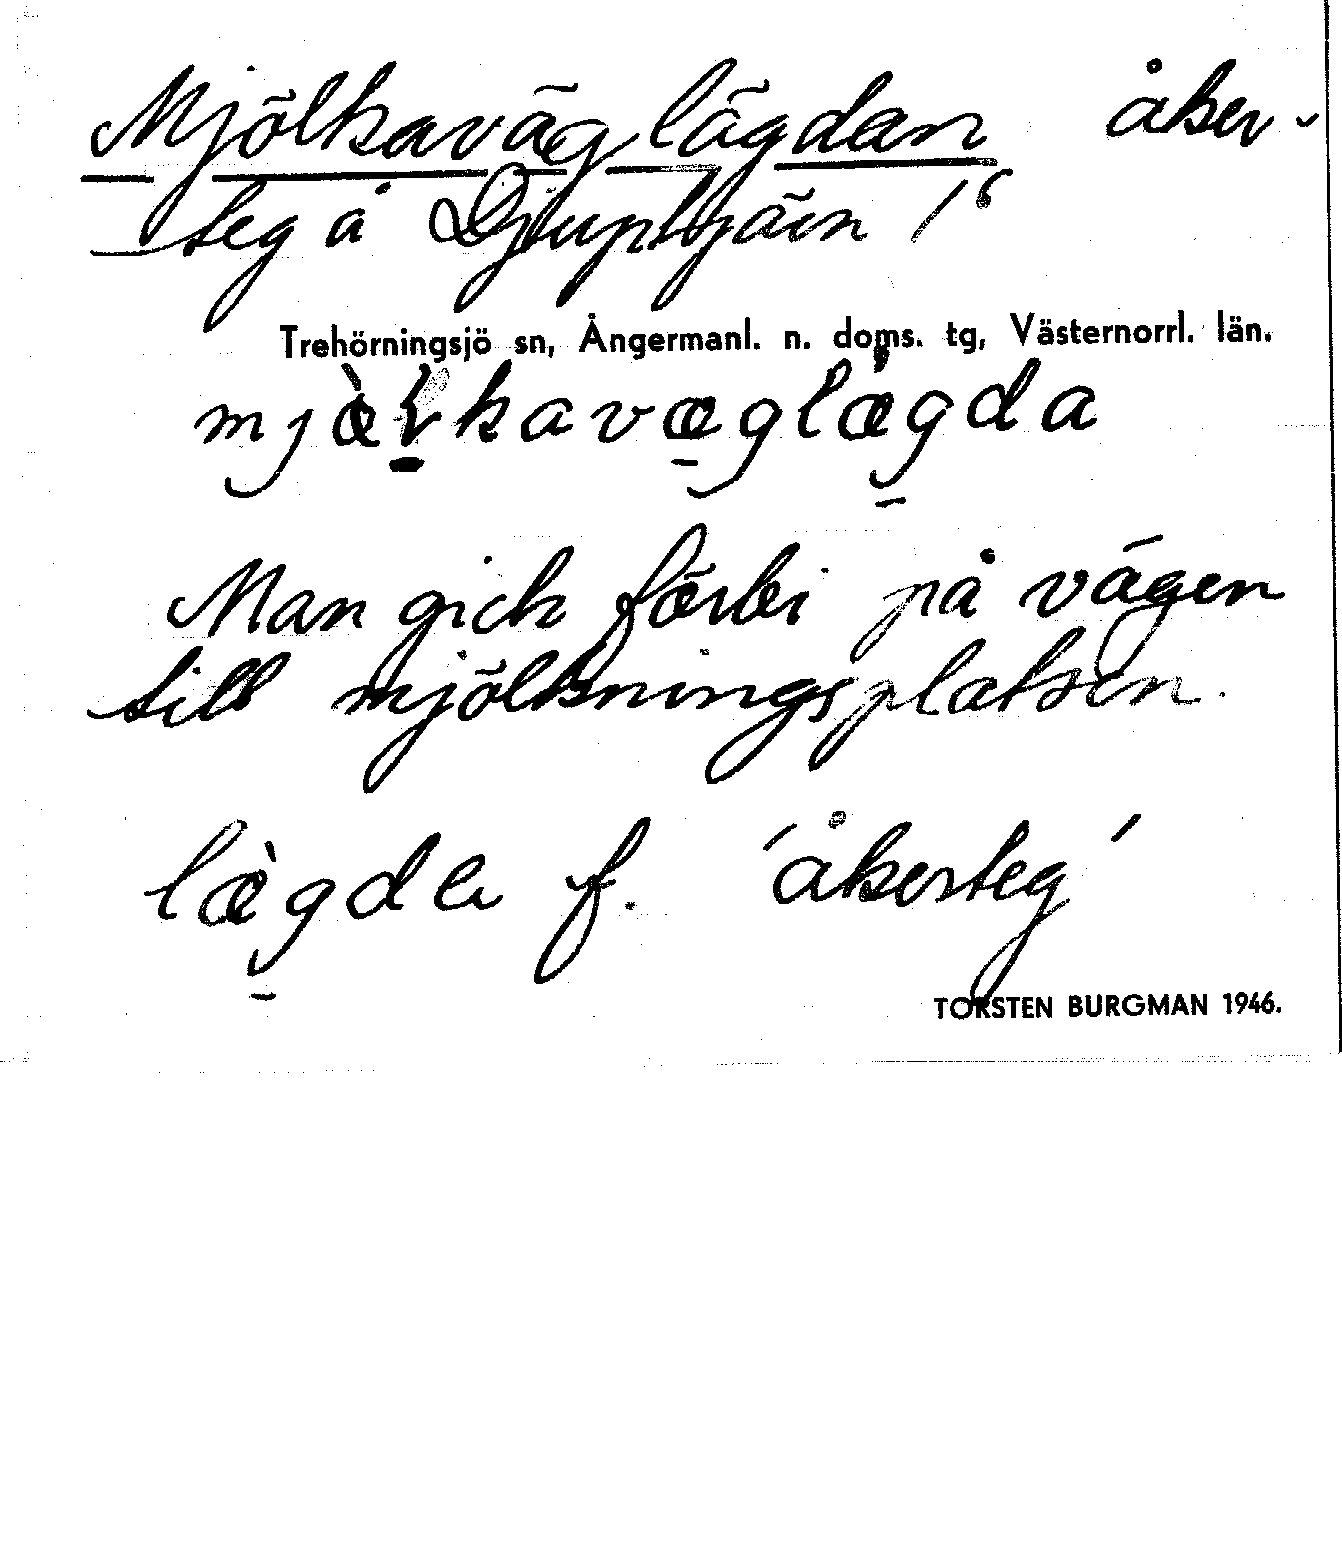 Mjölkaväglägdan åker-
teg å Djuptjärn 1⁶
Trehörningsjö sn, Ångermanl. n. doms. tg, Västernorrl. län.
mjæ̀ḷkavæg̱læ̀g̱da
Man gick förbi på vägen
till mjölkningsplatsen.
læ̀g̱da f. 'åkerteg'
TORSTEN BURGMAN 1946.